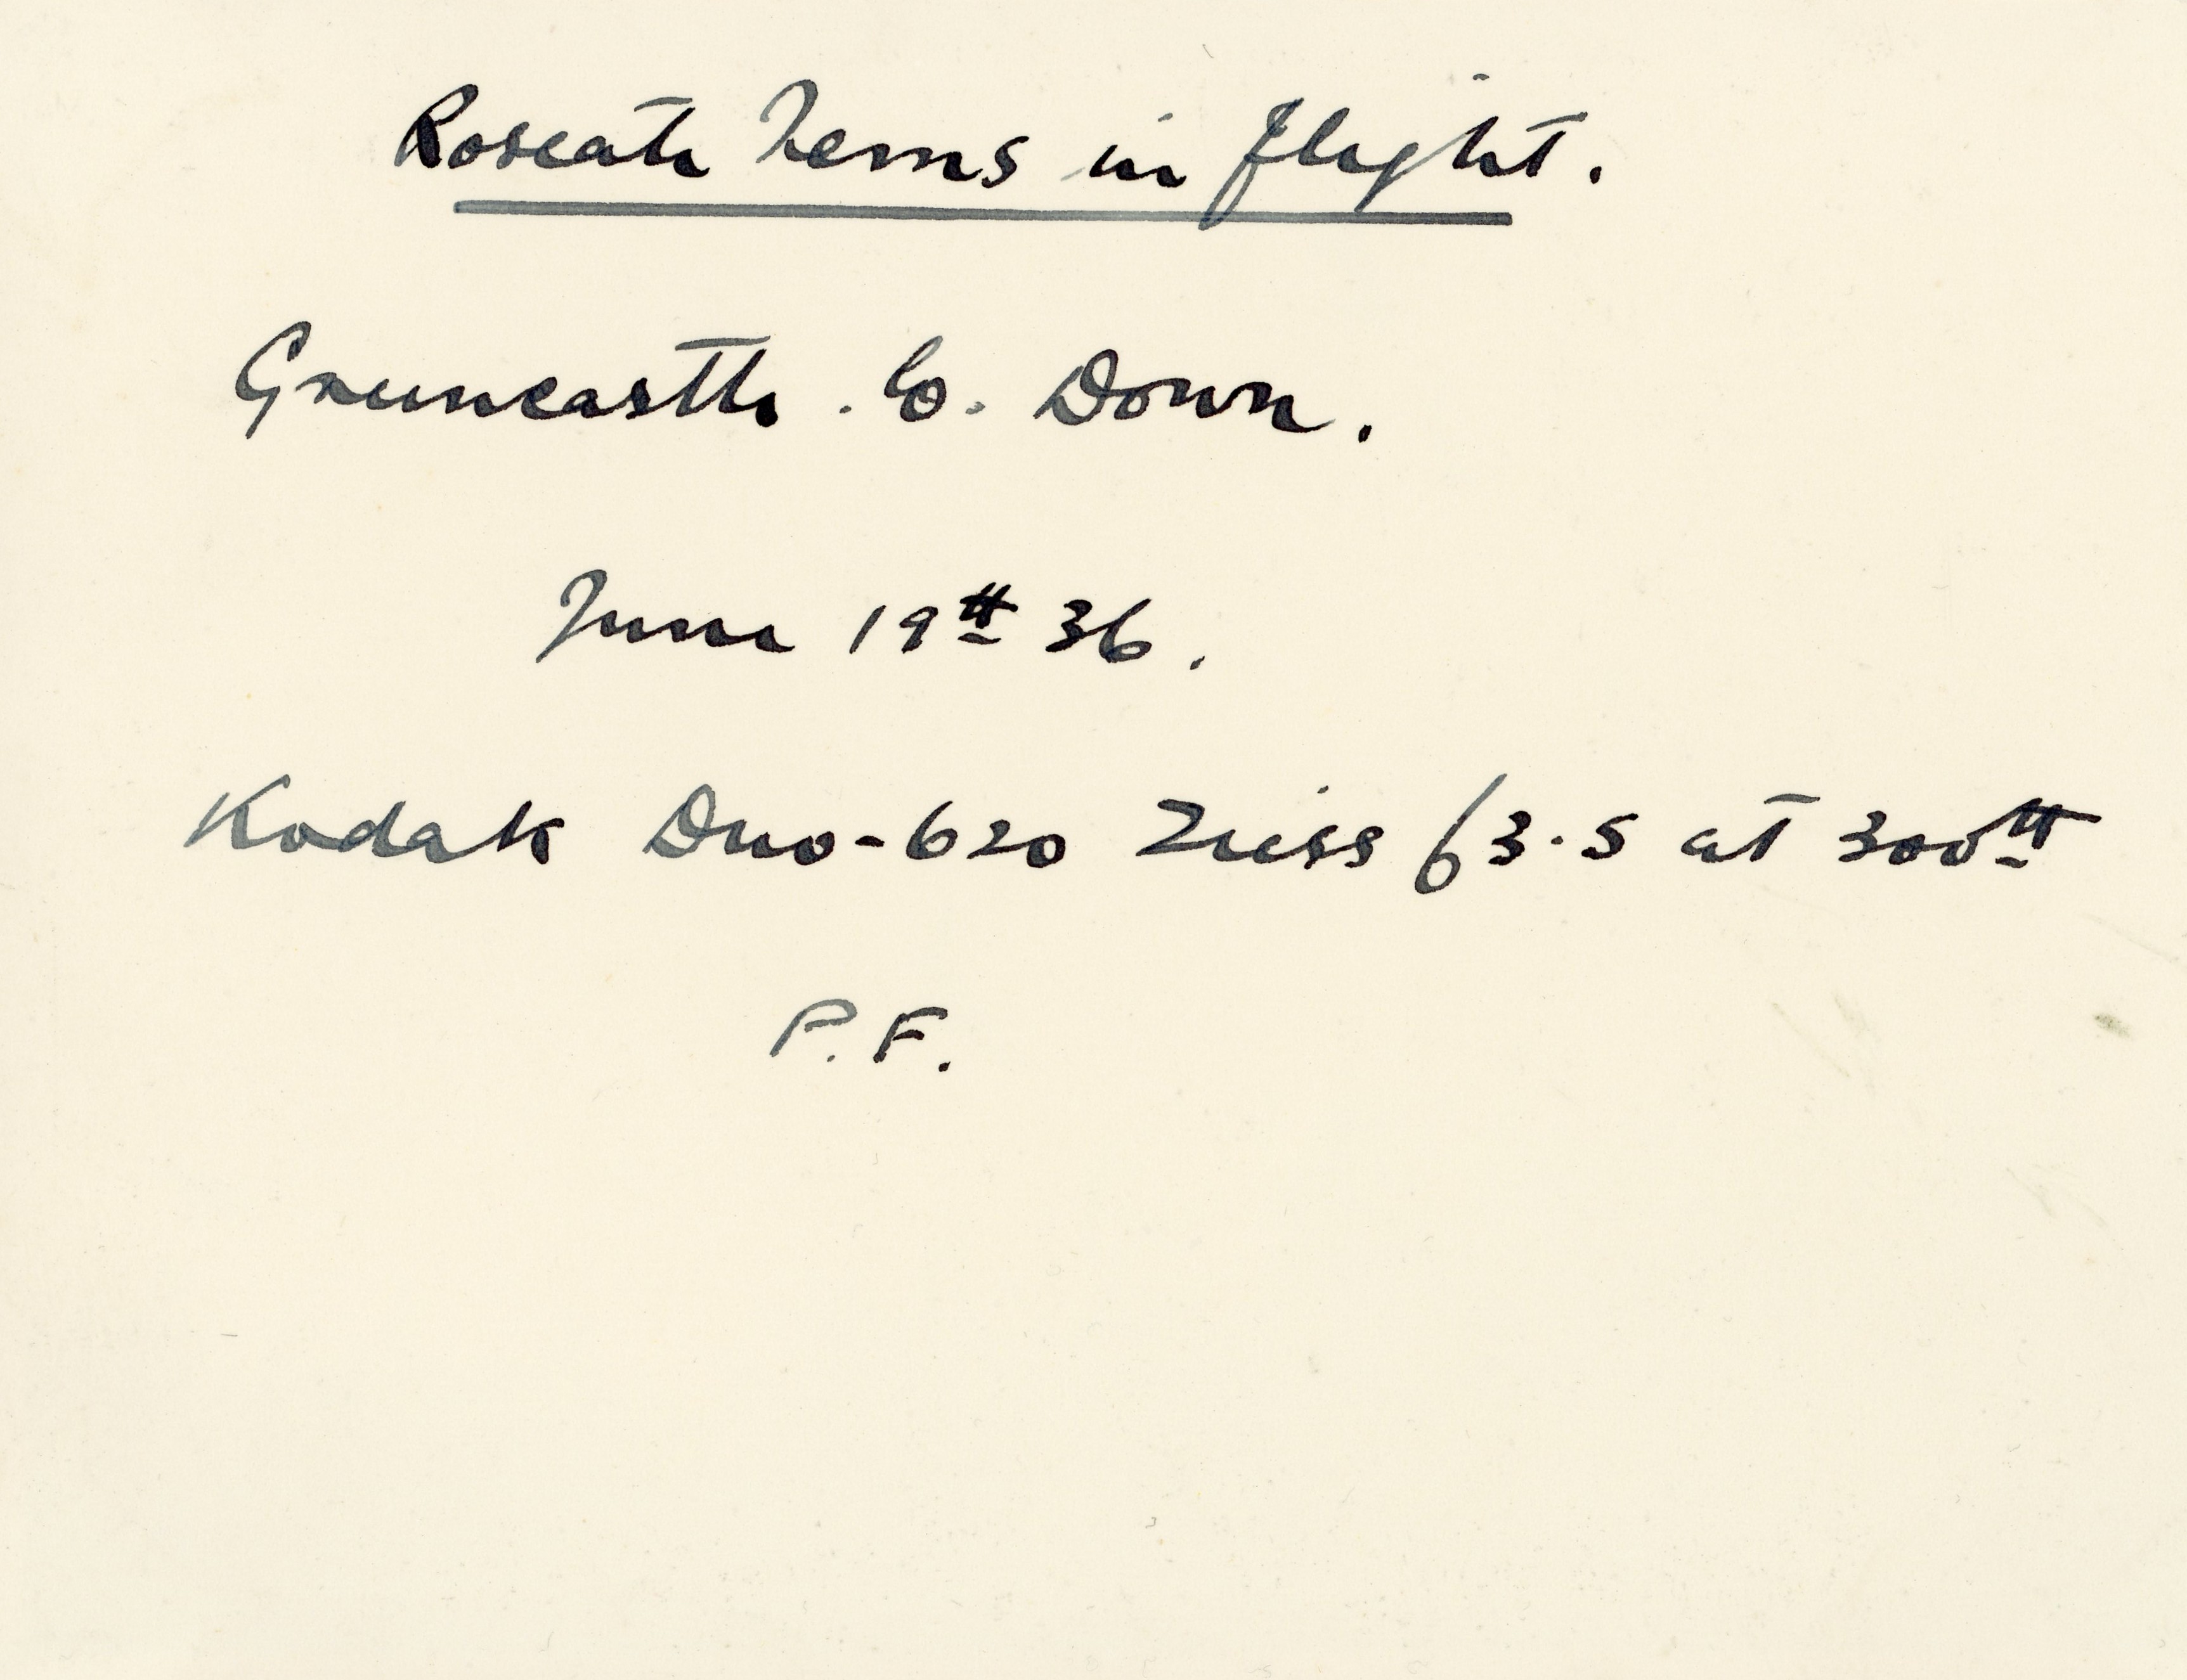 Roseate Terns in flight.
Greencastle . Co. Down.
June 19th 36.
Kodak Duo-620 Zeiss f3.5 at 300th
P.F.